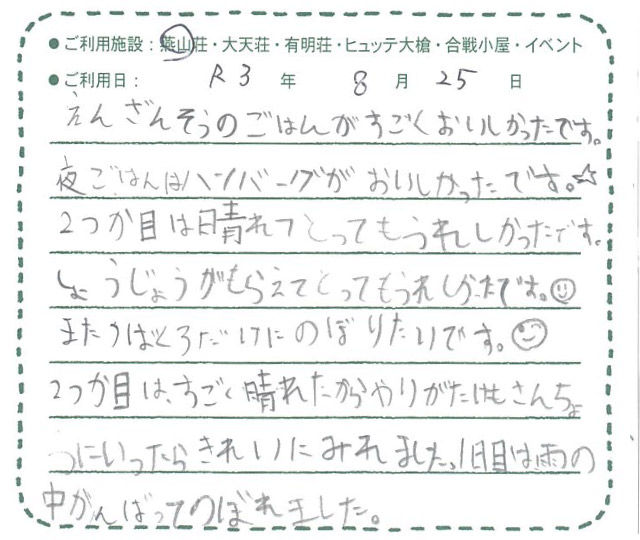 ●ご利用施設：燕山荘・大天荘・有明荘・ヒュッテ大槍・合戦小屋・イベント
●ご利用日： R3 年 8 月 25 日
えんざんそうのごはんがすごくおいしかったです。
夜ごはんはハンバーグがおいしかったです。☆
2つか目は晴れてとってもうれしかったです。
しょうじょうがもらえてとってもうれしかったです。
またつばくろだけにのぼりたいです。
2つか目は、すごく晴れたからやりがたけもさんちょ
うにいったらきれいにみれました。1日目は雨の
中がんばってのぼれました。